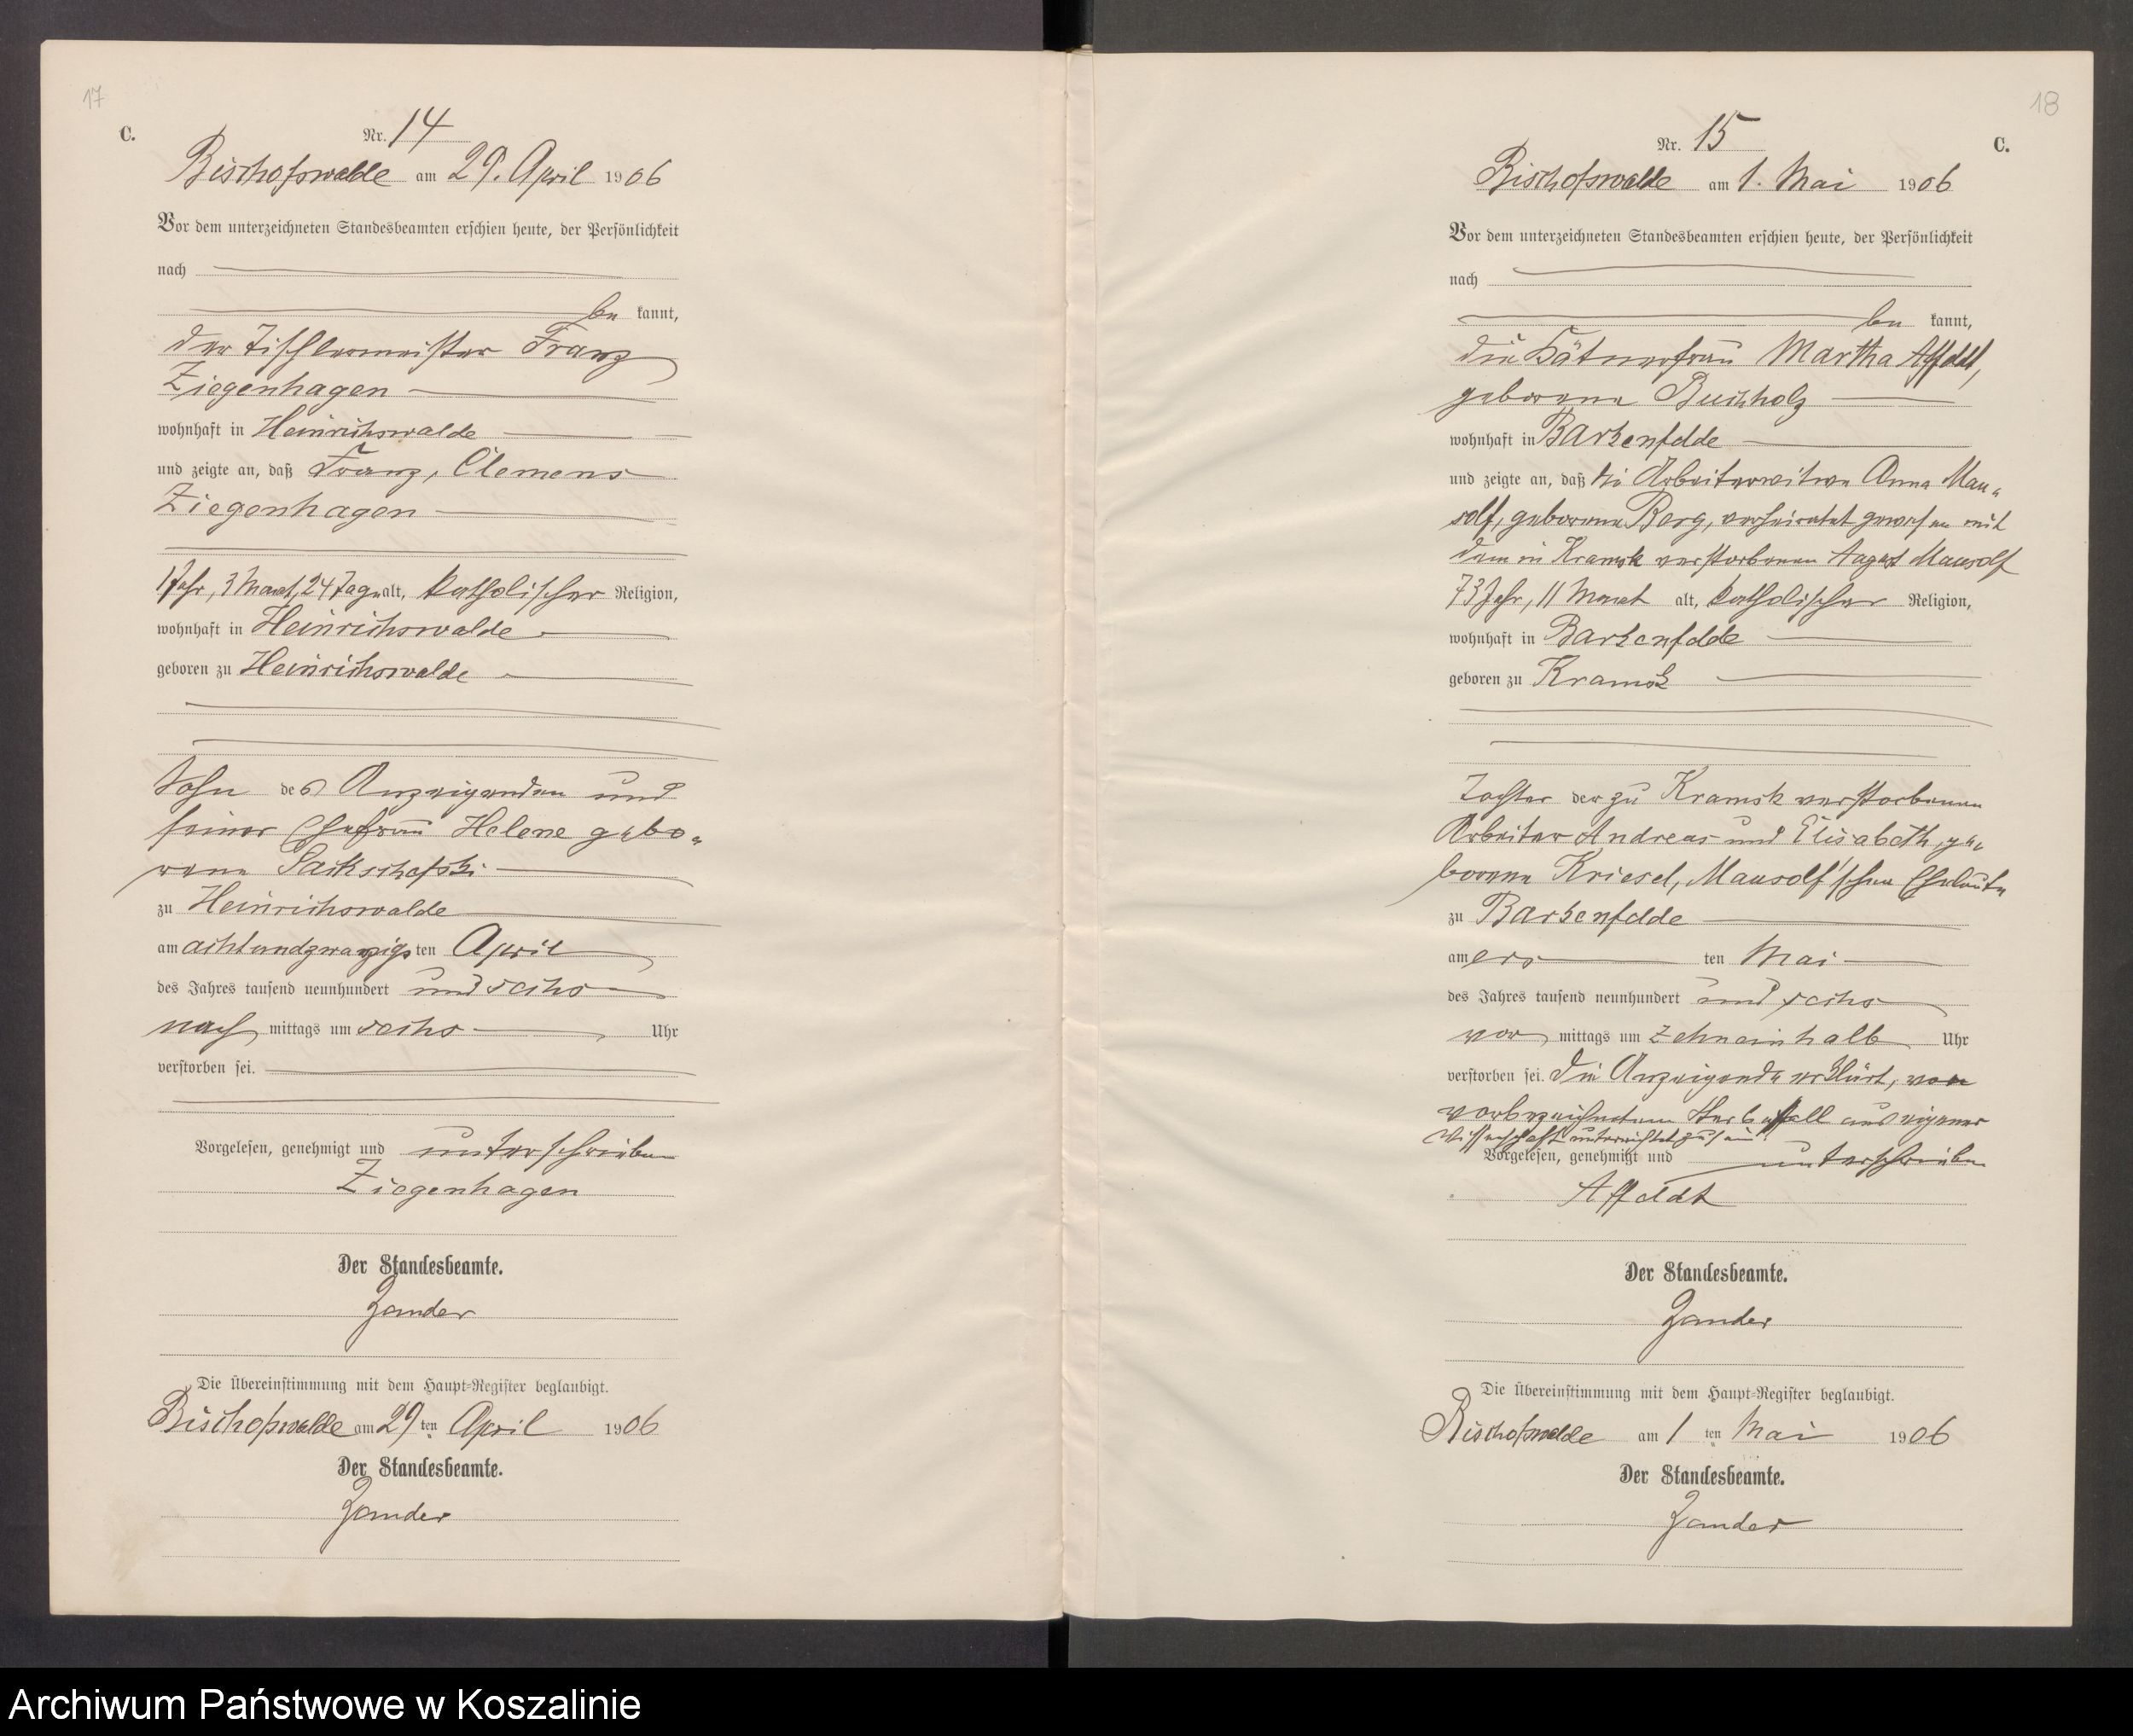 17
C.
Nr. 14
Bischofswalde am 29. April 1906
Vor dem unterzeichneten Standesbeamten erschien heute, der Persönlichkeit
nach
be kannt,
der Tischlermeister Franz
Ziegenhagen
wohnhaft in Heinrichswalde
und zeigte an, daß Franz, Clemens
Ziegenhagen
1 Jahr, 3 Monat, 24 Tage alt, katholischer Religion,
wohnhaft in Heinrichswalde
geboren zu Heinrichswalde
Sohn des Anzeigenden und
seiner Ehefrau Helene gebo-
rene
zu Heinrichswalde
am achtundzwanzigsten April
des Jahres tausend neunhundert und sechs
nach mittags um sechs Uhr
verstorben sei.
Vorgelesen, genehmigt und unterschrieben
Ziegenhagen
Der Standesbeamte.
Zander
Die Übereinstimmung mit dem Haupt-Register beglaubigt.
Bischofswalde am 29 ten April 1906
Der Standesbeamte.
Zander
18
Nr. 15
C.
Bischofswalde am 1. Mai 1906
Vor dem unterzeichneten Standesbeamten erschien heute, der Persönlichkeit
nach
be kannt,
die Kätnerfrau Martha Affeldt,
geborene Buchholz
wohnhaft in Barkenfelde
und zeigte an, daß die Arbeiterwitwe Anna Mau-
solf, geborene Berg, verheiratet gewesen mit
dem in Kramsk verstorbenen August Mausolf
73 Jahr, 11 Monat alt, katholischer Religion,
wohnhaft in Barkenfelde
geboren zu Kramsk
Tochter der zu Kramsk verstorbenen
Arbeiter Andreas und Elisabeth, ge-
borene Kriesel, Mausolf'schen Eheleute
zu Barkenfelde
am ers ten Mai
des Jahres tausend neunhundert und sechs
vor mittags um zehneinhalb Uhr
verstorben sei. Die Anzeigende erklärt, von
vorbezeichnetem Sterbefall aus eigener
Wissenschaft unterrichtet zu sein
Vorgelesen, genehmigt und unterschrieben
Affeldt
Der Standesbeamte.
Zander
Die Übereinstimmung mit dem Haupt-Register beglaubigt.
Bischofswalde am 1 ten Mai 1906
Der Standesbeamte.
Zander
Archiwum Państwowe w Koszalinie